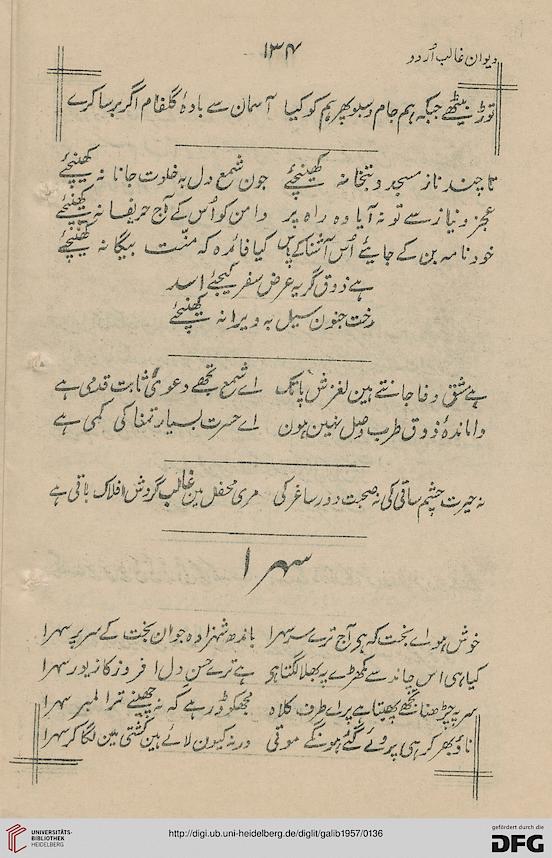 دیوان غالب اُردو
۱۳۴
توڑ بیٹھے جبکہ ہم جام و سبو پھر ہم کو کیا آسمان سے بادۂ گلفام اگر برسا کرے
تا چند ناز مسجد و بتخانہ کھینچئے جون شمع دل بہ خلوت جانانہ کھینچئے
عجز و نیاز سے تو نہ آیا وہ راہ پر دامن کو اُس کے آج حریفانہ کھینچئے
خود نامہ بن کے جایئے اُس آشنا کے پاس کیا فائدہ کہ منّت بیگانہ کھینچئے
ہے ذوق گریہ عرض سفر کیجئے اسد
رخت جنون سیل بہ ویرانہ کھینچئے
ہے مشق وفا جانتے ہین لغزش پا تک اے شمع تجھے دعویٔ ثابت قدمی ہے
وا ماندۂ ذوق طرب وصل نہین ہون اے حسرت بسیار تمنا کی کمی ہے
نہ حیرت چشم ساقی کی نہ صحبت دور ساغر کی مری محفل مین غالب گردش افلاک باقی ہے
سہرا
خوش ہو اے بخت کہ ہی آج ترے سر سہرا باندھ شہزادہ جوان بخت کے سر پر سہرا
کیا ہی اس چاند سے مکھڑے پہ بھلا لگتا ہی ہے ترے حسن دل افروز کا زیور سہرا
سر پہ چڑھنا تجھے پھبتا ہے پر اے طرف کلاہ مجھکو ڈر ہے کہ نہ چھینے ترا لمبر سہرا
ناؤ بھر کر ہی پروئے گئے ہونگے موتی ورنہ کیون لائے ہین کشتی مین لگا کر سہرا
UNIVERSITÄTS-
BIBLIOTHEK
HEIDELBERG
http://digi.ub.uni-heidelberg.de/diglit/galib1957/0136
gefördert durch die
DFG